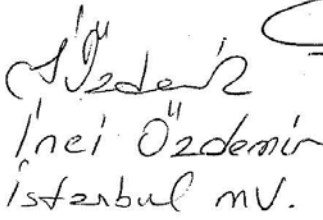 İnci Özdemir
İstanbul mv.